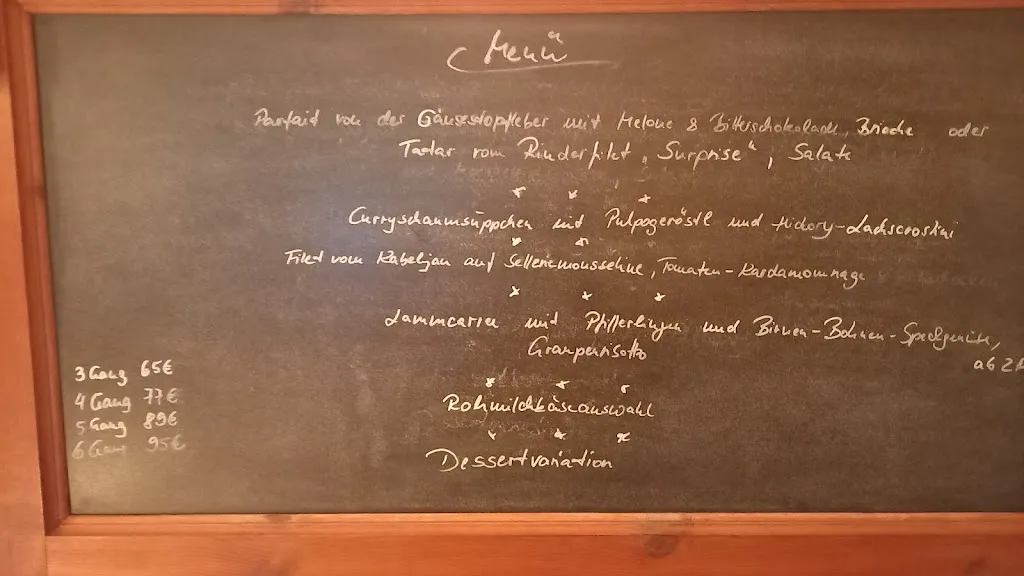 Menü
Parfait von der Gänsestopfleber mit Melone & Bitterschokolade, Brioche oder
Tartar vom Rinderfilet "Surprise", Salate
Curryschaumsüppchen mit Pulpogeröstl und Hickory-Lachscrostini
Filet vom Kabeljau auf Selleriemousseline, Tomaten-Kardamomnage
Lammcarree mit Pfifferlingen und Birnen-Bohnen-Speckgemüse,
Graupenrisotto
ab 2
3 Gang 65€
4 Gang 77€
5 Gang 89€
6 Gang 95€
Rohmilchkäseauswahl
Dessertvariation